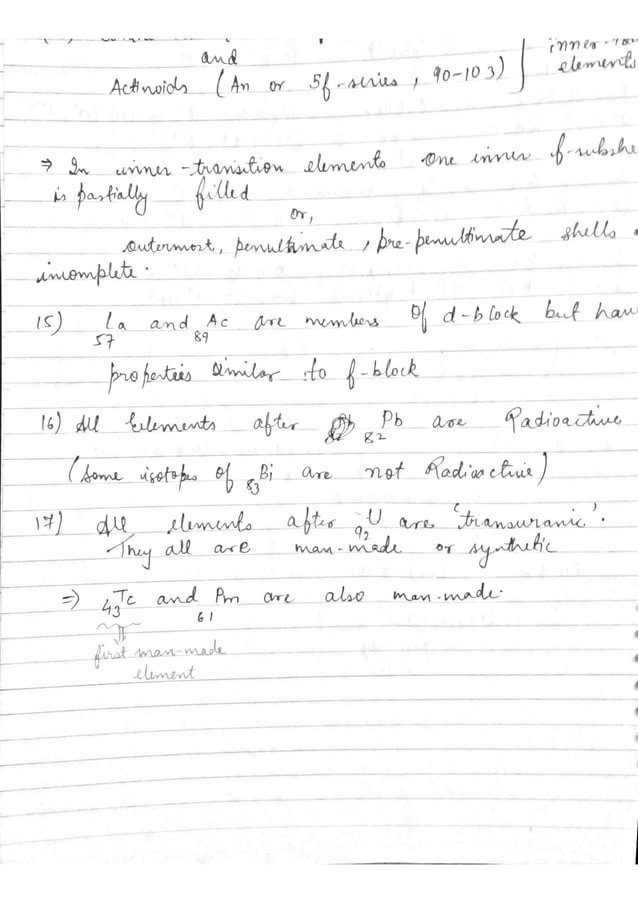 and
Actinoids (An or 5f-series, 90-103)
elements
⇒ In inner-transition elements one inner
is partially filled
or,
outermost, penultimate, pre-penultimate shells
incomplete.
15) 57La and 89Ac are members of d-block but
properties similar to f-block
16) All Elements after 82Pb are Radioactive
(Some isotopes of 83Bi are not Radioactive)
17) All elements after 92U are 'transuranic'.
They all are man-made or synthetic
⇒ 43Tc and 61Pm are also man-made.
first man-made
element